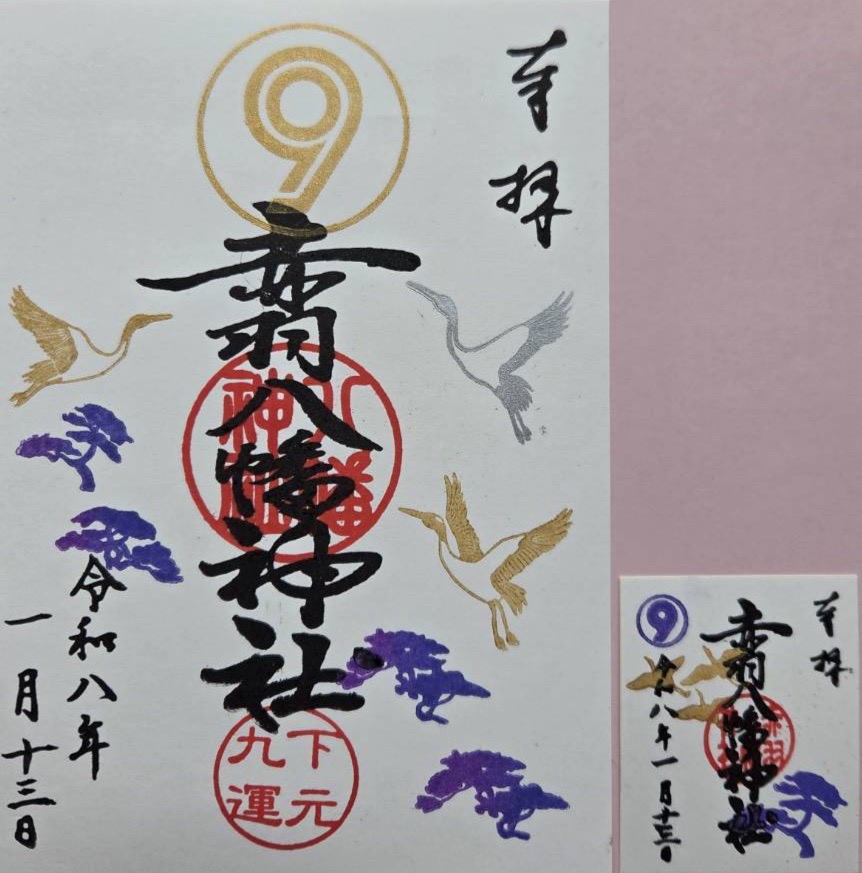 奉拝
9
赤羽八幡神社
八幡
神社
下元
九運
令和八年
一月十三日
奉拝
赤羽八幡神社
9
令和八年一月十三日